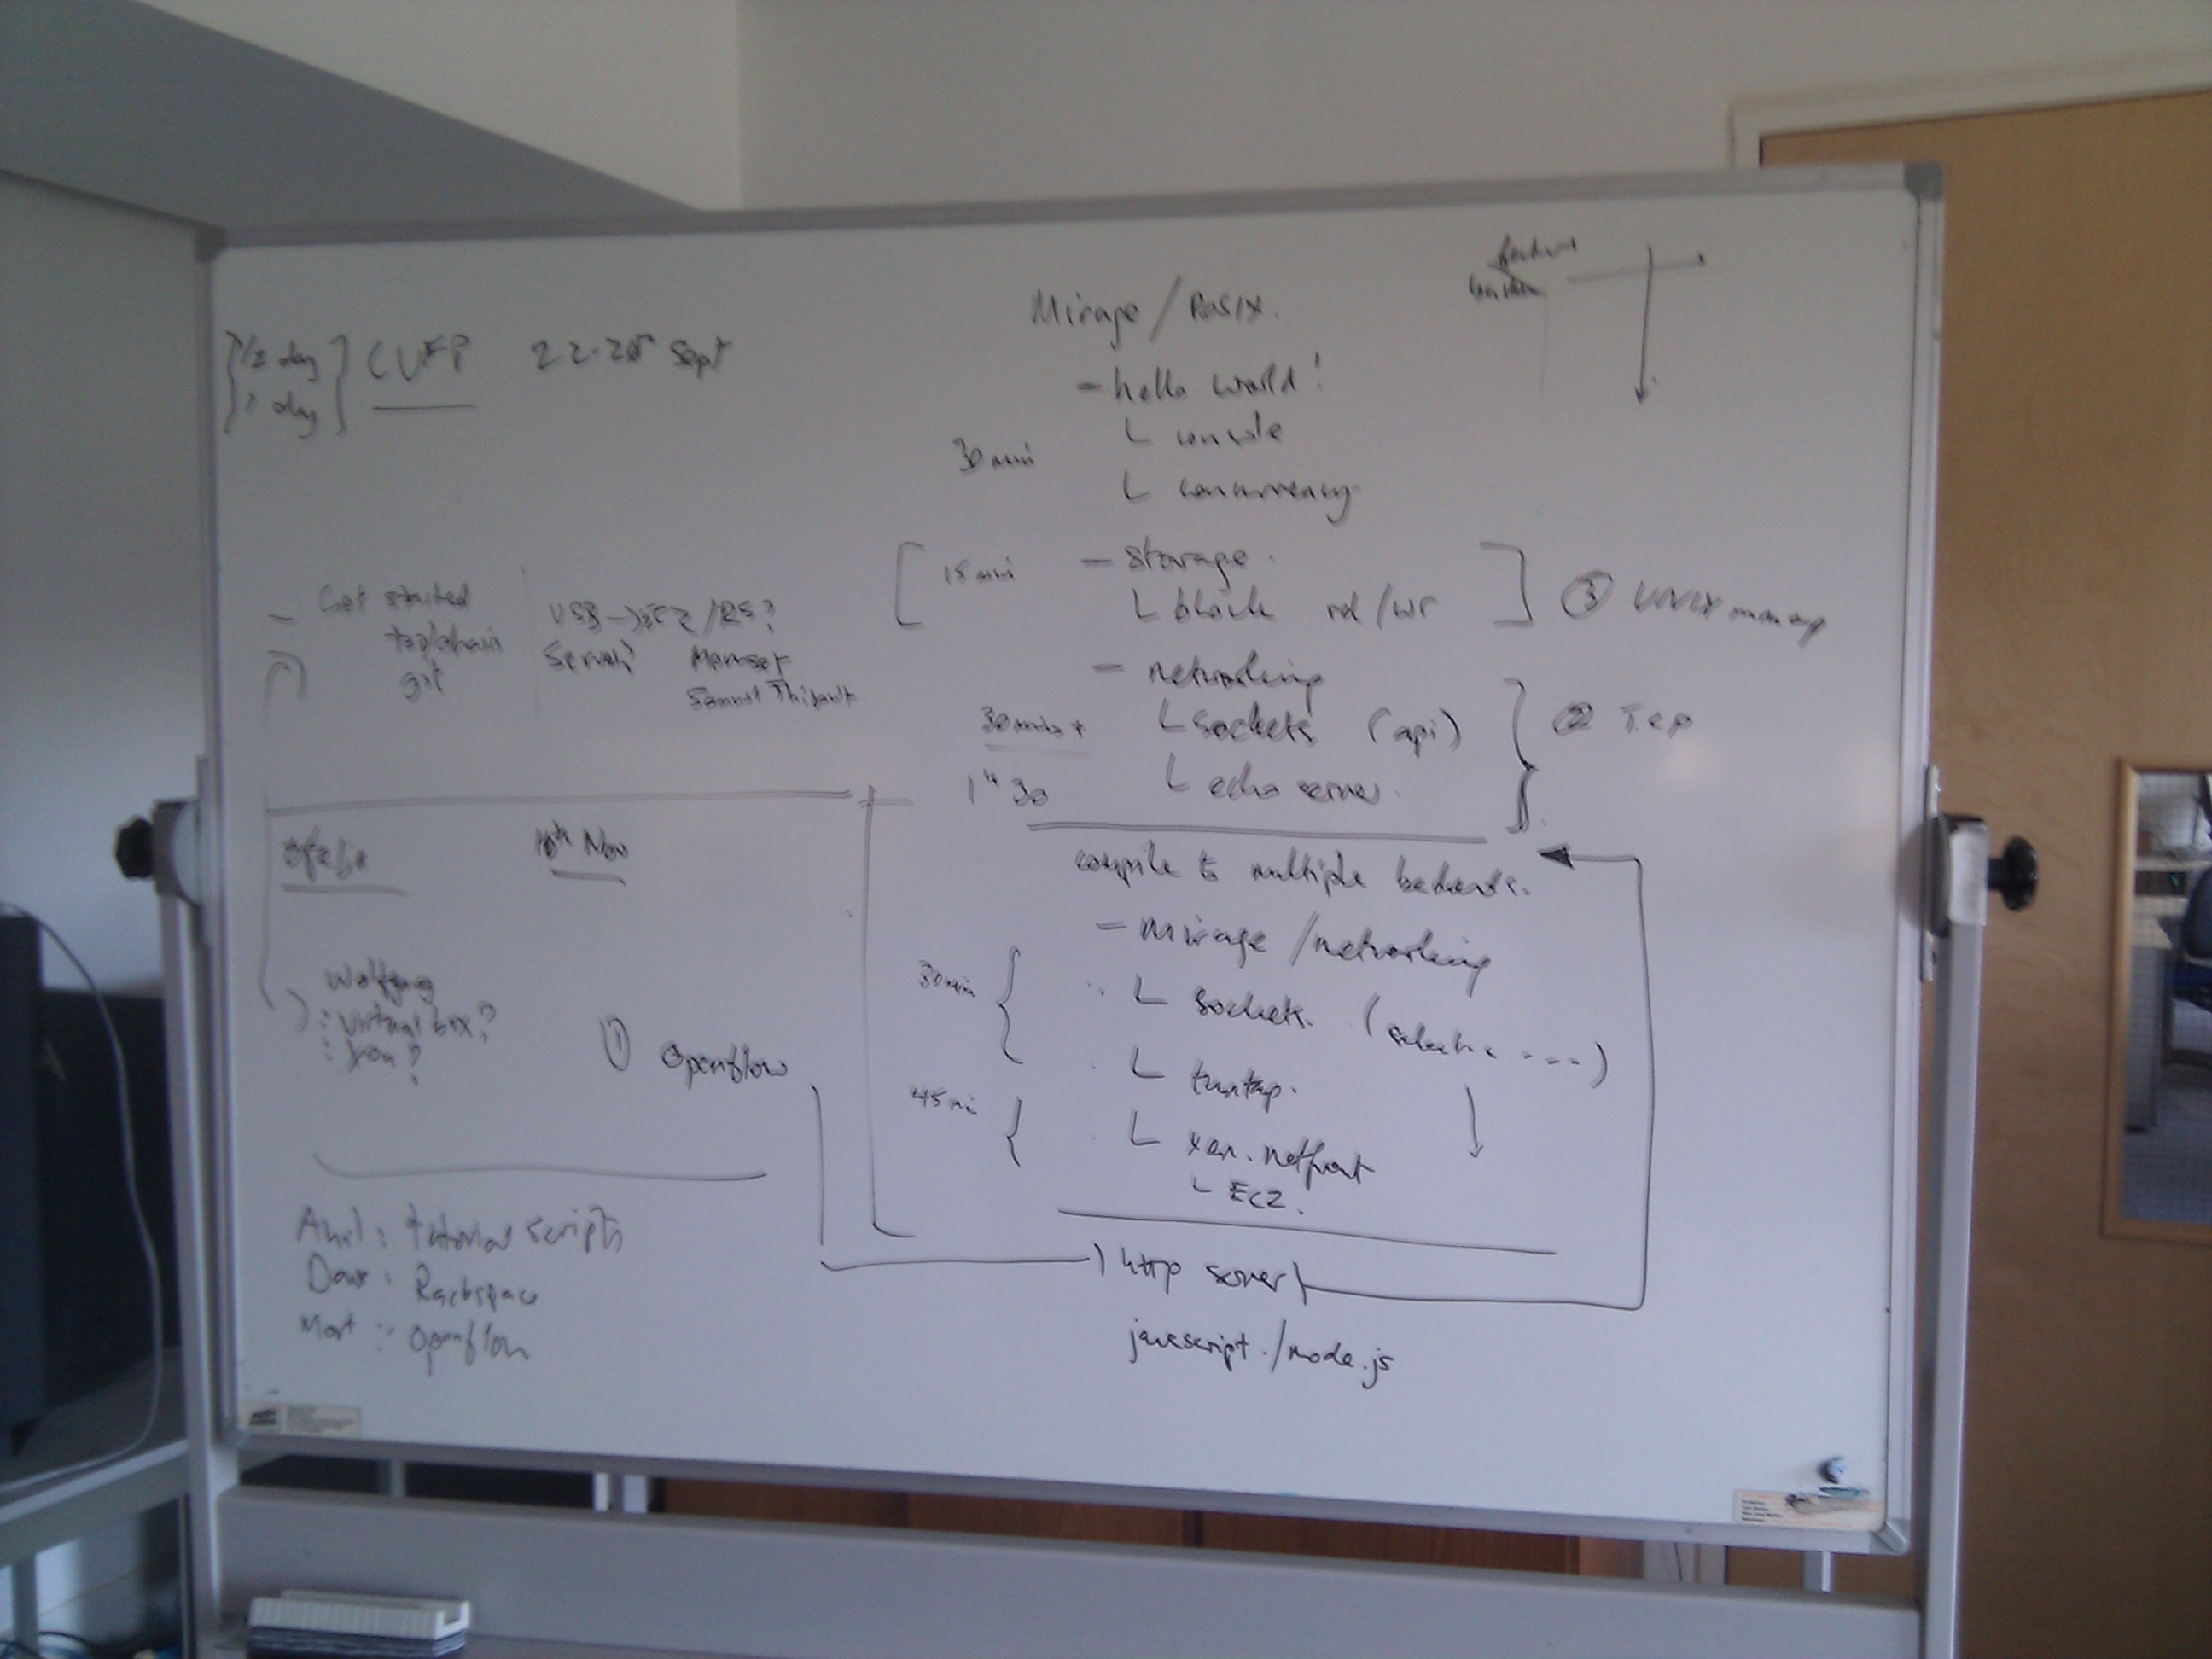 1/2 day
1 day
CUFP 22-25 Sept
- Get started
toolchain
git
USB → EC2/RS?
Server?
Memset
Samuel Thibault
ofelia
10th Nov
Wolfgang
: virtualbox?
: Xen?
① Openflow
Anil: tutorial scripts
Dave: Rackspace
Mort: Openflow
Mirage/POSIX.
- hello world!
└ console
└ concurrency
30 min
15 min
- storage.
└ block rd/wr
③ UNIX mmap
- networking
30 mins+
└ sockets (api)
② TCP
1h 30
└ echo server.
compile to multiple backends.
- Mirage/networking
30 min
└ sockets. (select ....)
└ tuntap.
45 mi
└ xen.netfront
└ EC2.
http server
javascript./node.js